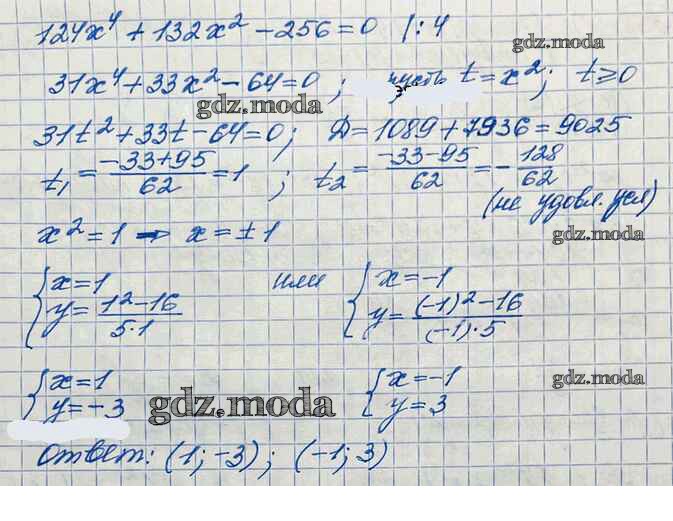 124x⁴ + 132x² − 256 = 0 |: 4
gdz.moda
31x⁴ + 33x² − 64 = 0 ; пусть t = x² ; t ⩾ 0
gdz.moda
31t² + 33t − 64 = 0 ; Д = 1089 + 7936 = 9025
t₁ = (−33+95)/62 = 1 ; t₂ = (−33−95)/62 = −128/62
(не удовл. усл)
x² = 1 ⇒ x = ±1
gdz.moda
{ x = 1 или { x = −1
{ y = (1² − 16)/(5·1) { y = ((−1)² − 16)/((−1)·5)
{ x = 1 { x = −1
gdz.moda
{ y = −3 { y = 3
gdz.moda
Ответ: (1; −3) ; (−1; 3)